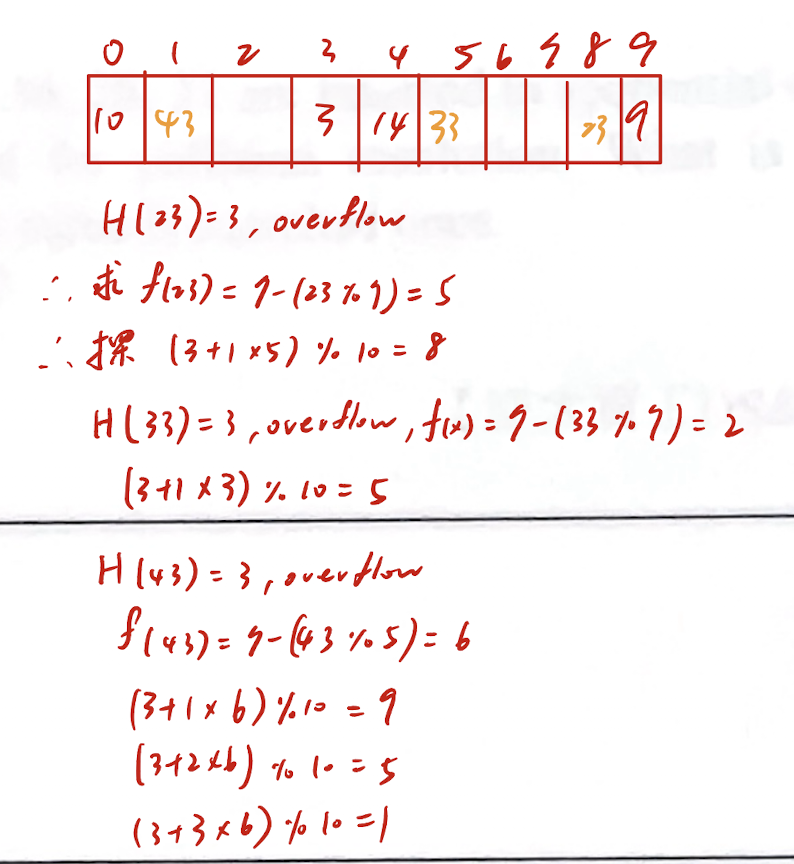 0 1 2 3 4 5 6 7 8 9
10 43 3 14 33 23 9
H(23)=3, overflow
∴ 求 f(23) = 7-(23%7) = 5
∴ 探 (3+1×5) % 10 = 8
H(33)=3, overflow, f(x) = 7-(33%7) = 2
(3+1×3) % 10 = 5
H(43)=3, overflow
f(43) = 7-(43%7) = 6
(3+1×6) % 10 = 9
(3+2×6) % 10 = 5
(3+3×6) % 10 = 1